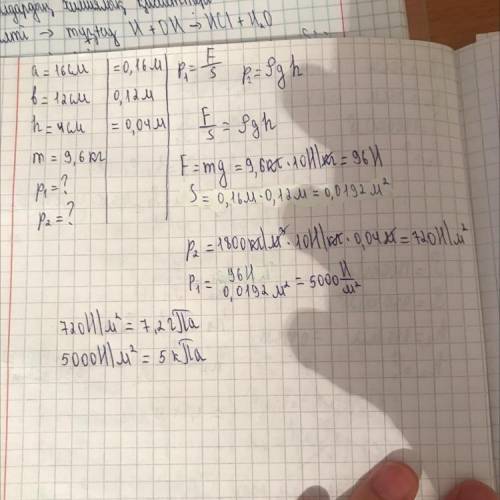 лті → тұздау H + OH → HCl + H₂O
a = 16 см = 0,16 м
в = 12 см 0,12 м
h = 4 см = 0,04 м
m = 9,6 кг
p₁ = ?
p₂ = ?
p₁ = F/S p₂ = ρgh
F/S = ρgh
F = mg = 9,6 кг · 10 Н/кг = 96 Н
S = 0,16 м · 0,12 м = 0,0192 м²
p₂ = 1800 кг/м³ · 10 Н/кг · 0,04 м = 720 Н/м²
p₁ = 96 Н / 0,0192 м² = 5000 Н/м²
720 Н/м² = 7,2 гПа
5000 Н/м² = 5 кПа